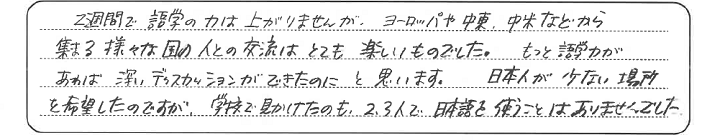 2週間で語学の力は上がりませんが、ヨーロッパや中東、中米などから
集まる様々な国の人との交流はとても楽しいものでした。 もっと語学力が
あれば深いディスカッションができたのにと思います。 日本人が少ない場所
を希望したのですが、学校で見かけたのも、2.3人で日本語を使うことはありませんでした